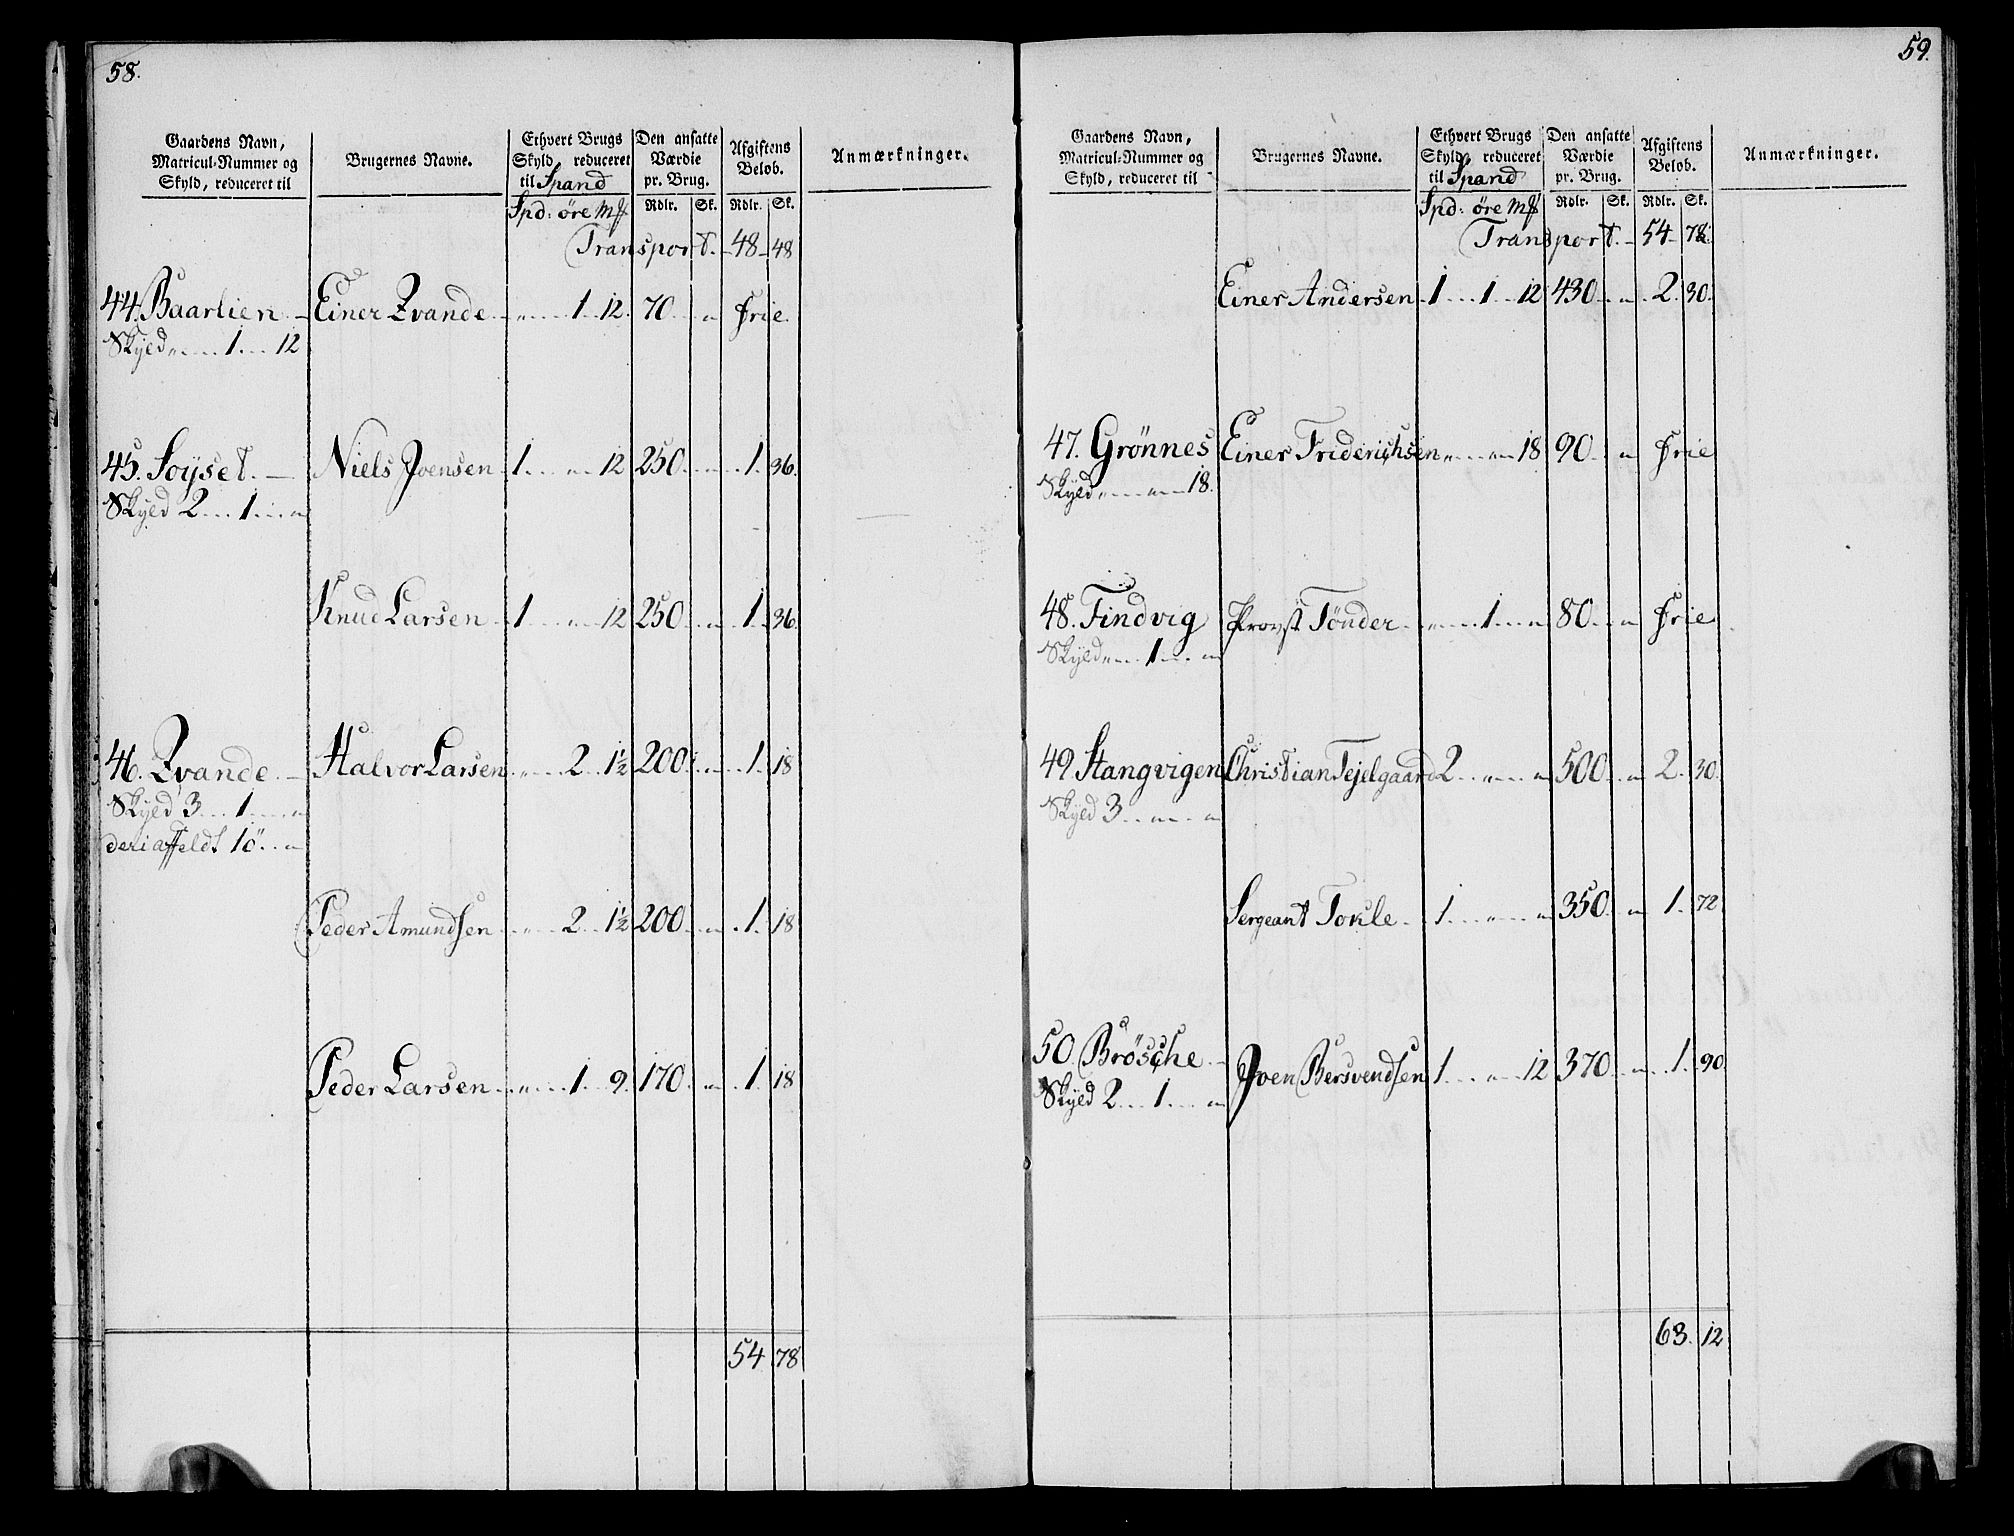 58.
Gaardens Navn, Matricul-Nummer og Skyld, reduceret til
Brugernes Navne.
Ethvert Brugs Skyld, reduceret til Spand
Den ansatte Værdie pr. Brug.
Afgiftens Beløb.
Anmærkninger.
Spd: öre mß Rdlr. Sk. Rdlr. Sk.
Transport. 48 48
44. Baarlien Einer Zvande " 1 12. 70 " frie.
Skyld " 1 12
45. Soÿset. Niels Joensen 1 " 12 250 " 1. 36.
Skyld 2 1 "
Knud Larsen 1 " 12 250 " 1. 36.
46. Zvande Halvor Larsen " 2 1½ 200 " 1. 18
Skyld 3 1 "
deri affeldt 10 "
Peder Amundsen " 2 1½ 200 " 1. 18
Peder Larsen " 1 9. 170 " 1. 18
54 78
59.
Gaardens Navn, Matricul-Nummer og Skyld, reduceret til
Brugernes Navne.
Ethvert Brugs Skyld, reduceret til Spand
Den ansatte Værdie pr. Brug.
Afgiftens Beløb.
Anmærkninger.
Spd: öre mß Rdlr. Sk. Rdlr. Sk.
Transport. 54 78.
Einer Andersen 1 1 12 430 " 2. 30.
47. Grönnes Einer Friderichsen " " 18 90 " frie
Skyld " " 18.
48. Findvig Provst Tönder " 1 " 80 " frie
Skyld " 1 "
49. Stangvigen Christian Tejelgaard 2 " " 500 " 2. 30.
Skyld 3 " "
Sergeant Tokle 1 " " 350 " 1. 72
50. Brösche Joen Bersvendsen 1 " 12 370 " 1. 90
Skyld 2 1 "
63. 12